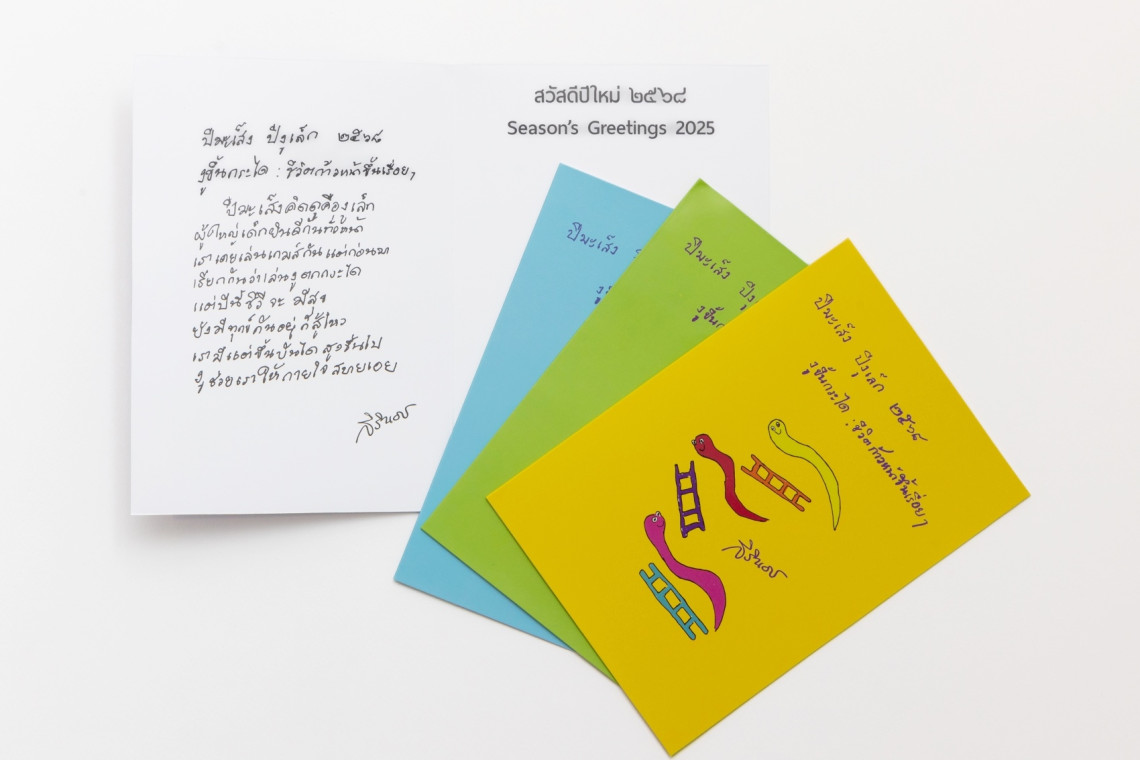 ปีมะเส็ง ปีงูเล็ก ๒๕๖๘
งูขึ้นกระได : ชีวิตก้าวหน้าขึ้นเรื่อยๆ
ปีมะเส็งคิดดูคืองูเล็ก
ผู้ใหญ่เด็กยินดีกันทั่วหน้า
เราเคยเล่นเกมส์กันแต่ก่อนมา
เรียกกันว่าเล่นงูตกกระได
แต่ปีนี้ชีวีจะมีสุข
ยังมีทุกข์กันอยู่ก็สู้ไหว
เรามีแต่ขึ้นบันไดสูงขึ้นไป
งูช่วยเราให้กายใจสบายเอย
สิรินธร
สวัสดีปีใหม่ ๒๕๖๘
Season's Greetings 2025
ปีมะเส็ง ปี
งู
ปีมะเส็ง ปีงู
งูขึ้น
ปีมะเส็ง ปีงูเล็ก ๒๕๖๘
งูขึ้นกระได : ชีวิตก้าวหน้าขึ้นเรื่อยๆ
สิรินธร